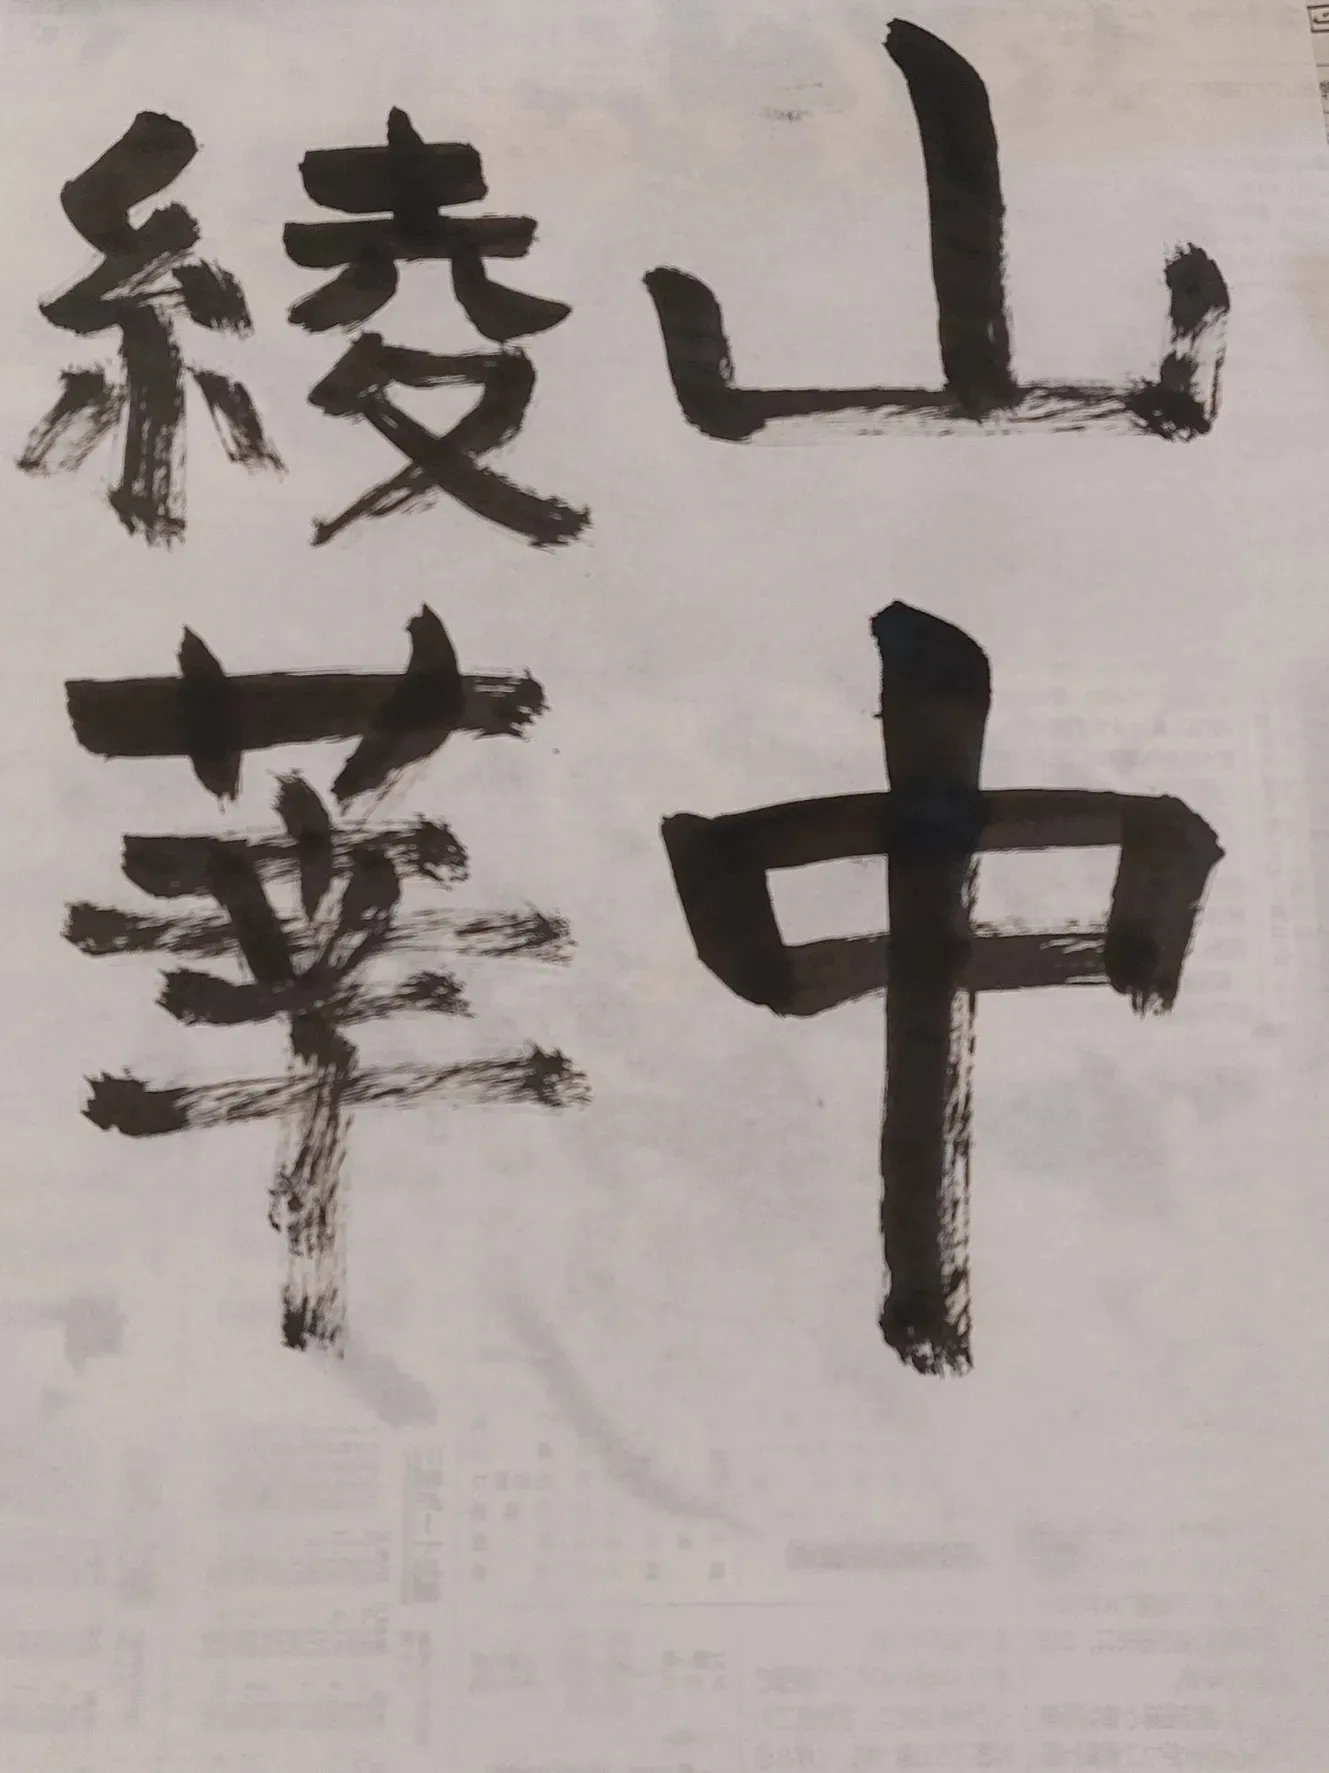 山中
綾華